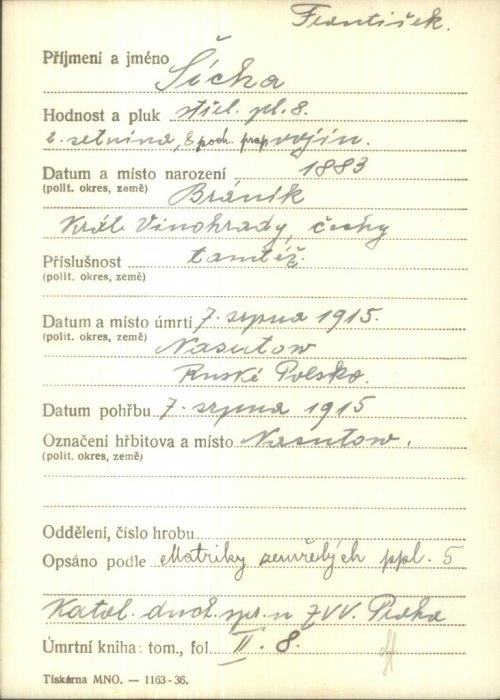 František.
Příjmení a jméno Šícha
Hodnost a pluk střel. pl. 8.
2. setnina, 8 poch. prap. vojín.
Datum a místo narození 1883
(polit. okres, země) Bráník
Král. Vinohrady, čechy
Příslušnost tamtéž.
(polit. okres, země)
Datum a místo úmrtí 7. srpna 1915.
(polit. okres, země) Nasutow
Ruské Polsko.
Datum pohřbu 7. srpna 1915
Označení hřbitova a místo Nasutow.
(polit. okres, země)
Oddělení, číslo hrobu
Opsáno podle Matriky zemřelých ppl. 5
Katol. duch. spr. u ZVV. Praha
Úmrtní kniha: tom., fol. II. 8.
Tiskárna MNO. — 1163-36.